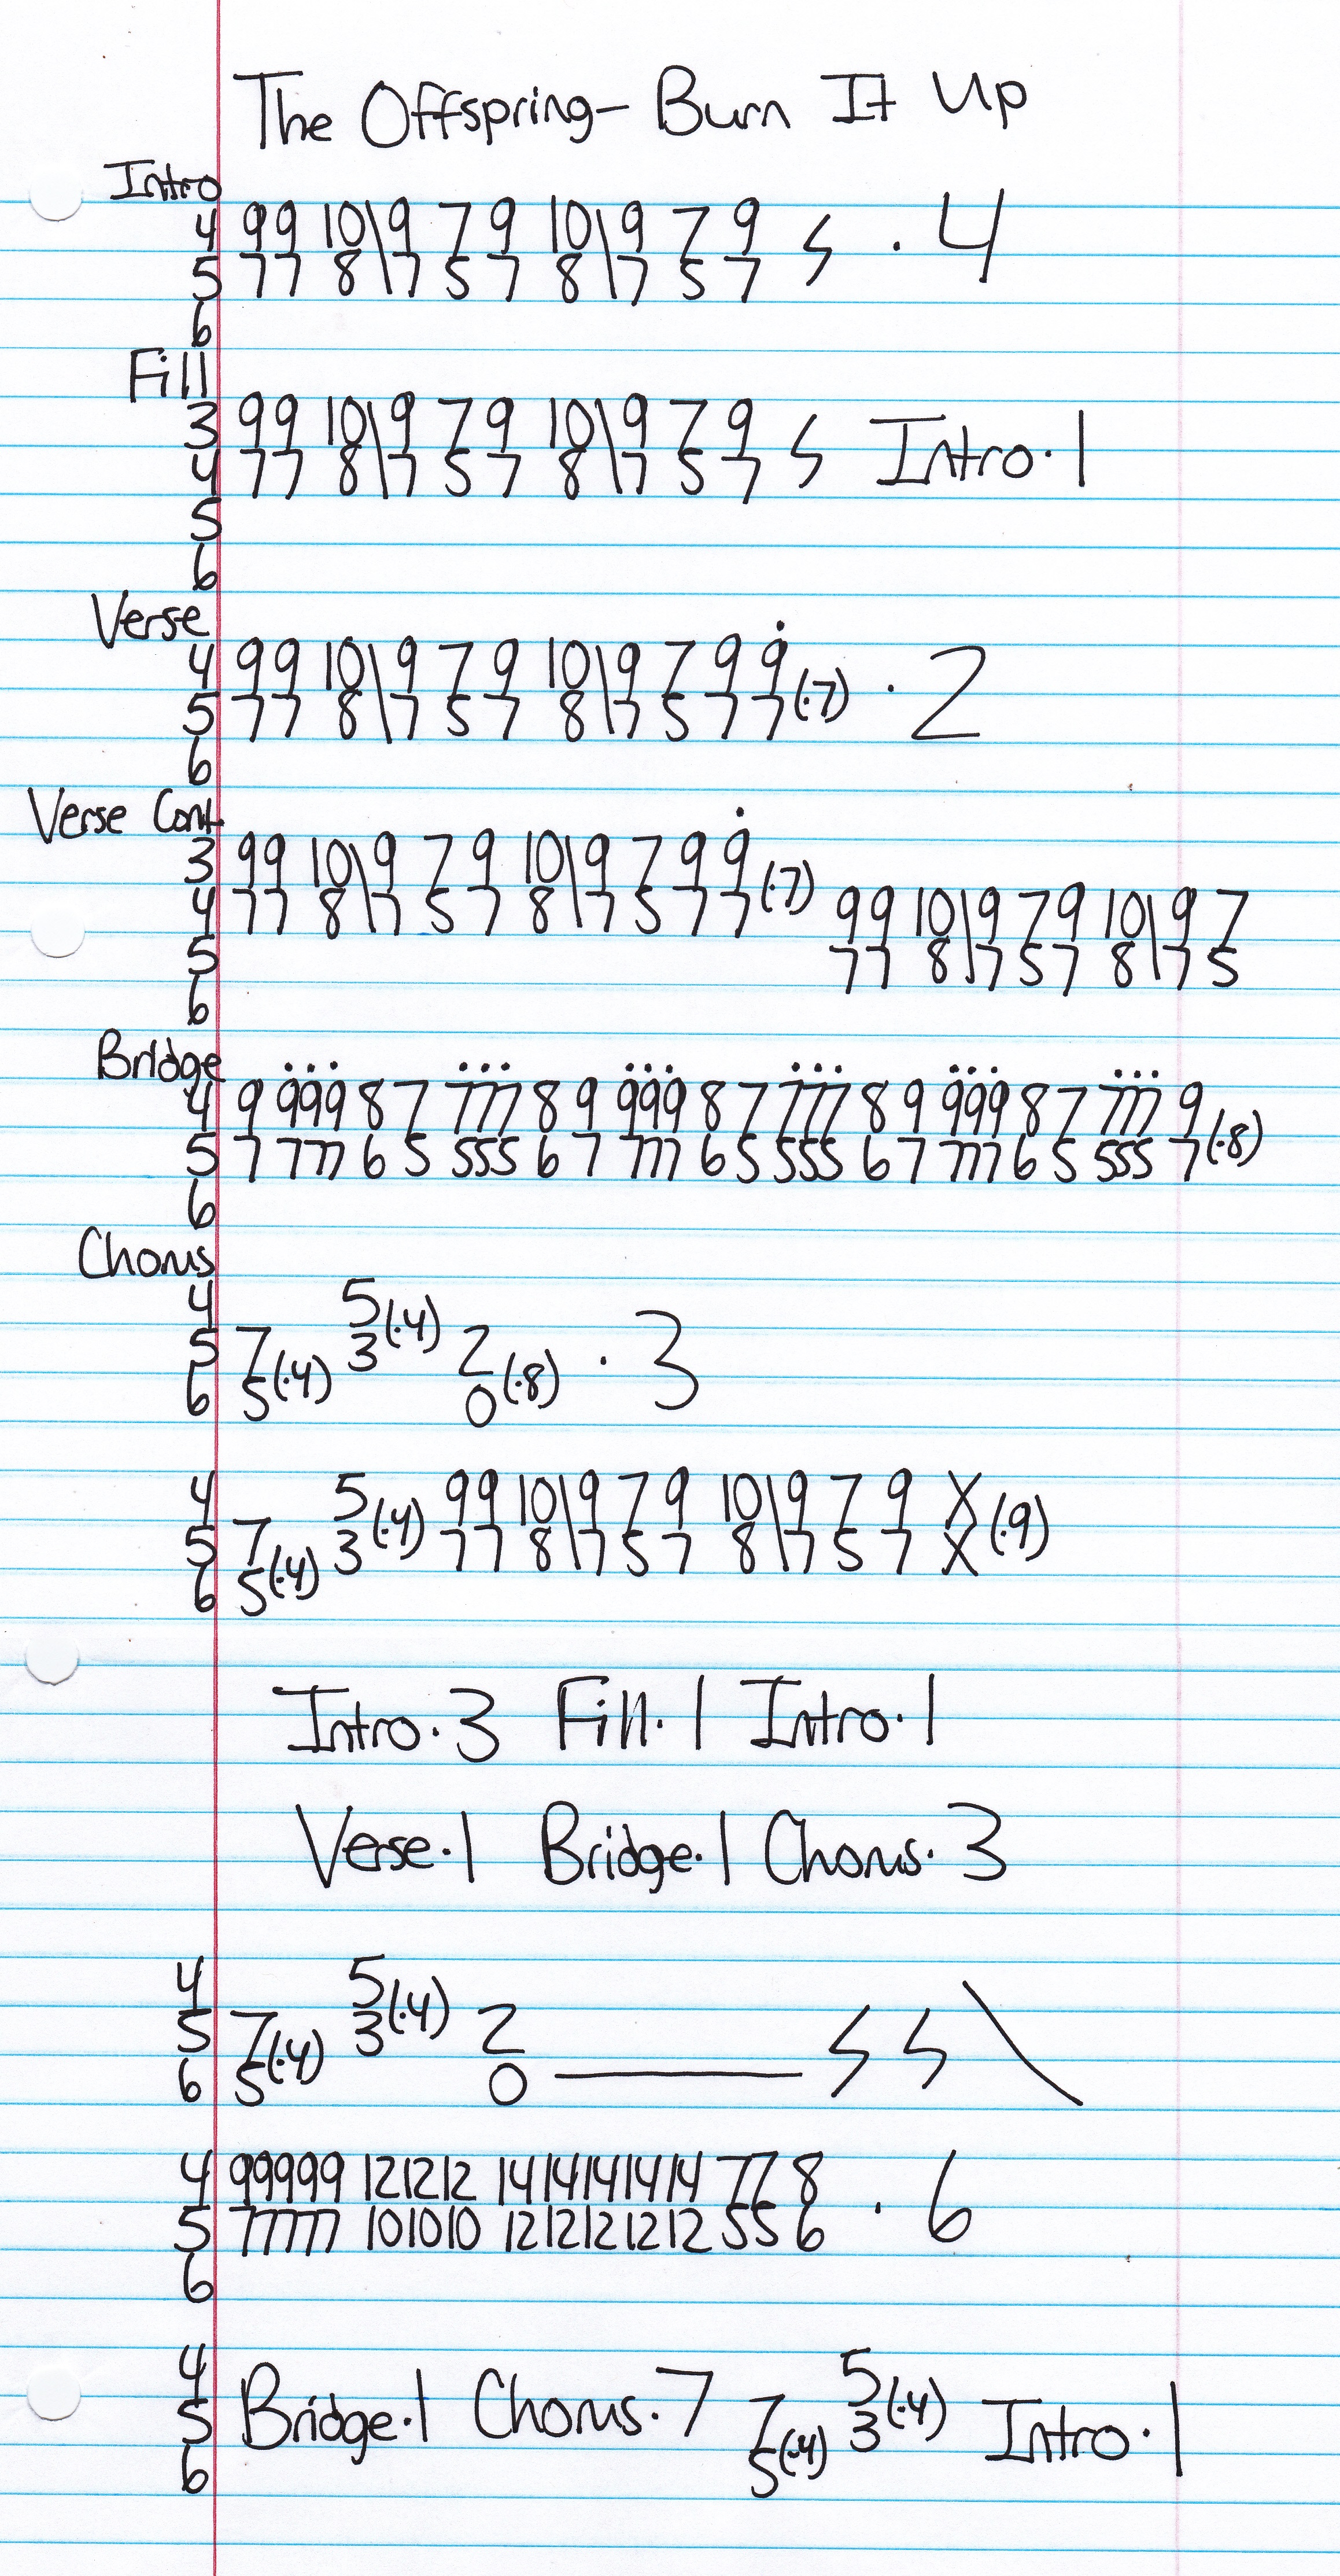 The Offspring - Burn It Up
Intro
4 99 10\9 7 9 10\9 7 9 𝄽 · 4
5 77 8\7 5 7 8\7 5 7
6
Fill
3 99 10\9 7 9 10\9 7 9 𝄽 Intro·1
4 77 8\7 5 7 8\7 5 7
5
6
Verse
4 99 10\9 7 9 10\9 7 9 9 · 2
5 77 8\7 5 7 8\7 5 7 7(·7)
6
Verse Cont.
3 99 10\9 7 9 10\9 7 9 9
4 77 8\7 5 7 8\7 5 7 7(·7) 99 10\9 7 9 10\9 7
5 77 8\7 5 7 8\7 5
6
Bridge
4 9 999 8 7 777 8 9 999 8 7 777 8 9 999 8 7 777 9
5 7 777 6 5 555 6 7 777 6 5 555 6 7 777 6 5 555 7(·8)
6
Chorus
4 5
5 7 3(·4) 2 · 3
6 5(·4) 0(·8)
4 5 99 10\9 7 9 10\9 7 9 X
5 7 3(·4) 77 8\7 5 7 8\7 5 7 X(·9)
6 5(·4)
Intro·3 Fill·1 Intro·1
Verse·1 Bridge·1 Chorus·3
4 5
5 7 3(·4) 2
6 5(·4) 0 ——— 𝄽 𝄽 \
4 99999 121212 1414141414 77 8 · 6
5 77777 101010 1212121212 55 6
6
4 5
5 Bridge·1 Chorus·7 7 3(·4) Intro·1
6 5(·4)